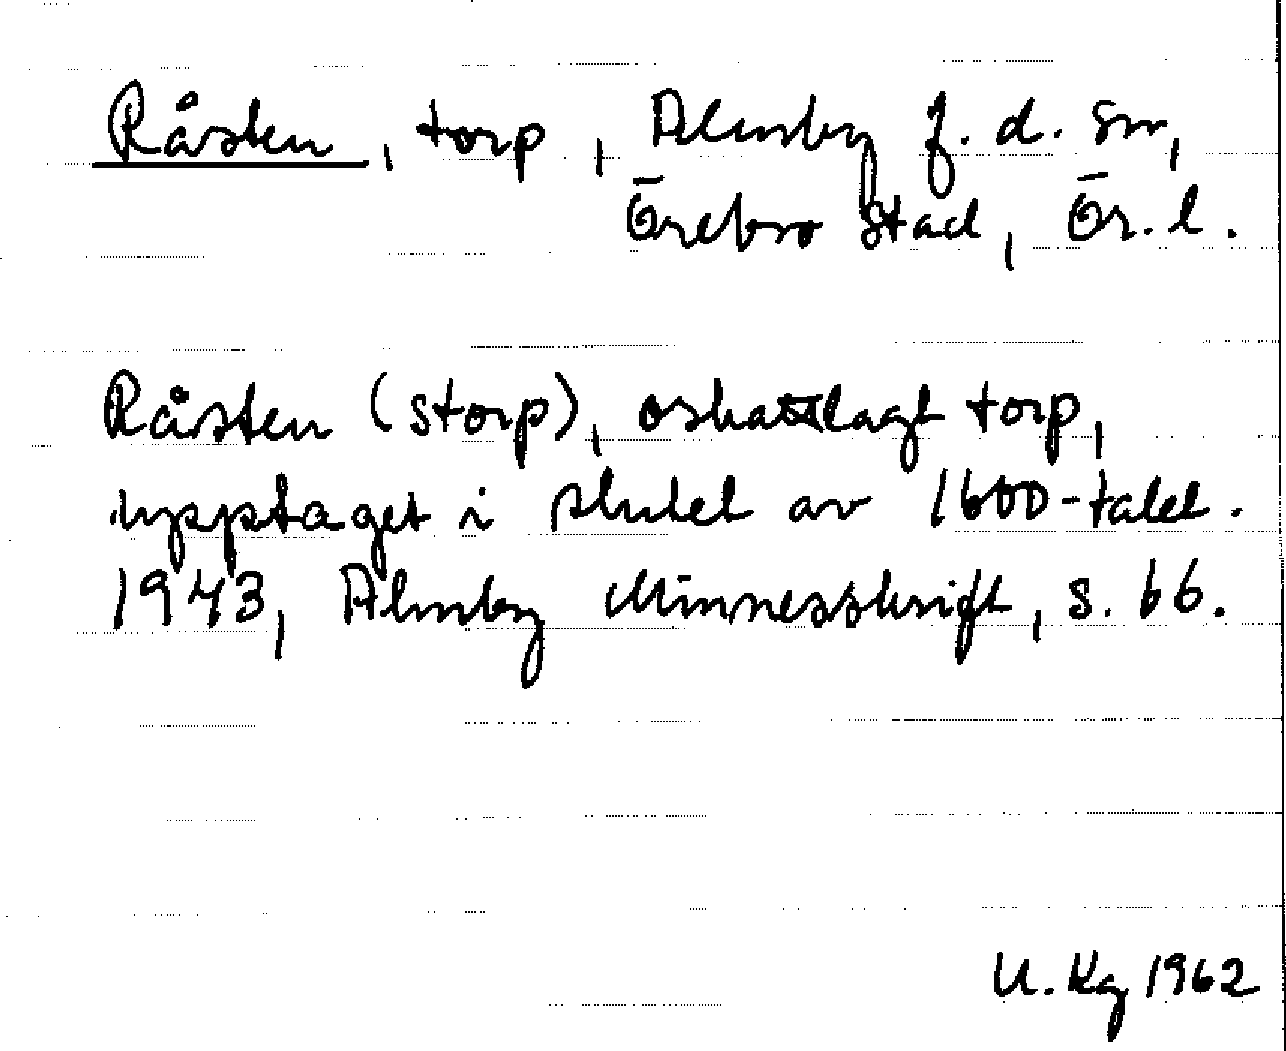 Råsten, torp, Almby f. d. sn,
Örebro stad, Ör. l.
Råsten (storp), oskattlagt torp,
upptaget i slutet av 1600-talet.
1943, Almby Minnesskrift, s. 66.
U. Kg 1962